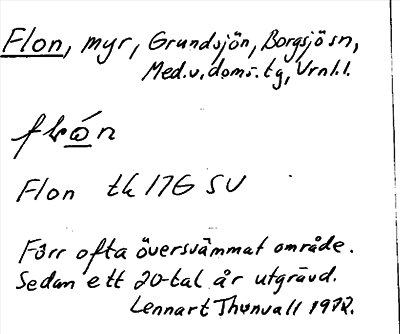 Flon, myr, Grundsjön, Borgsjö sn,
Med.v. doms.tg, Vrnl.l.
Flon tk 17G SV
Förr ofta översvämmat område.
Sedan ett 20-tal år utgrävd.
Lennart Thunvall 1972.